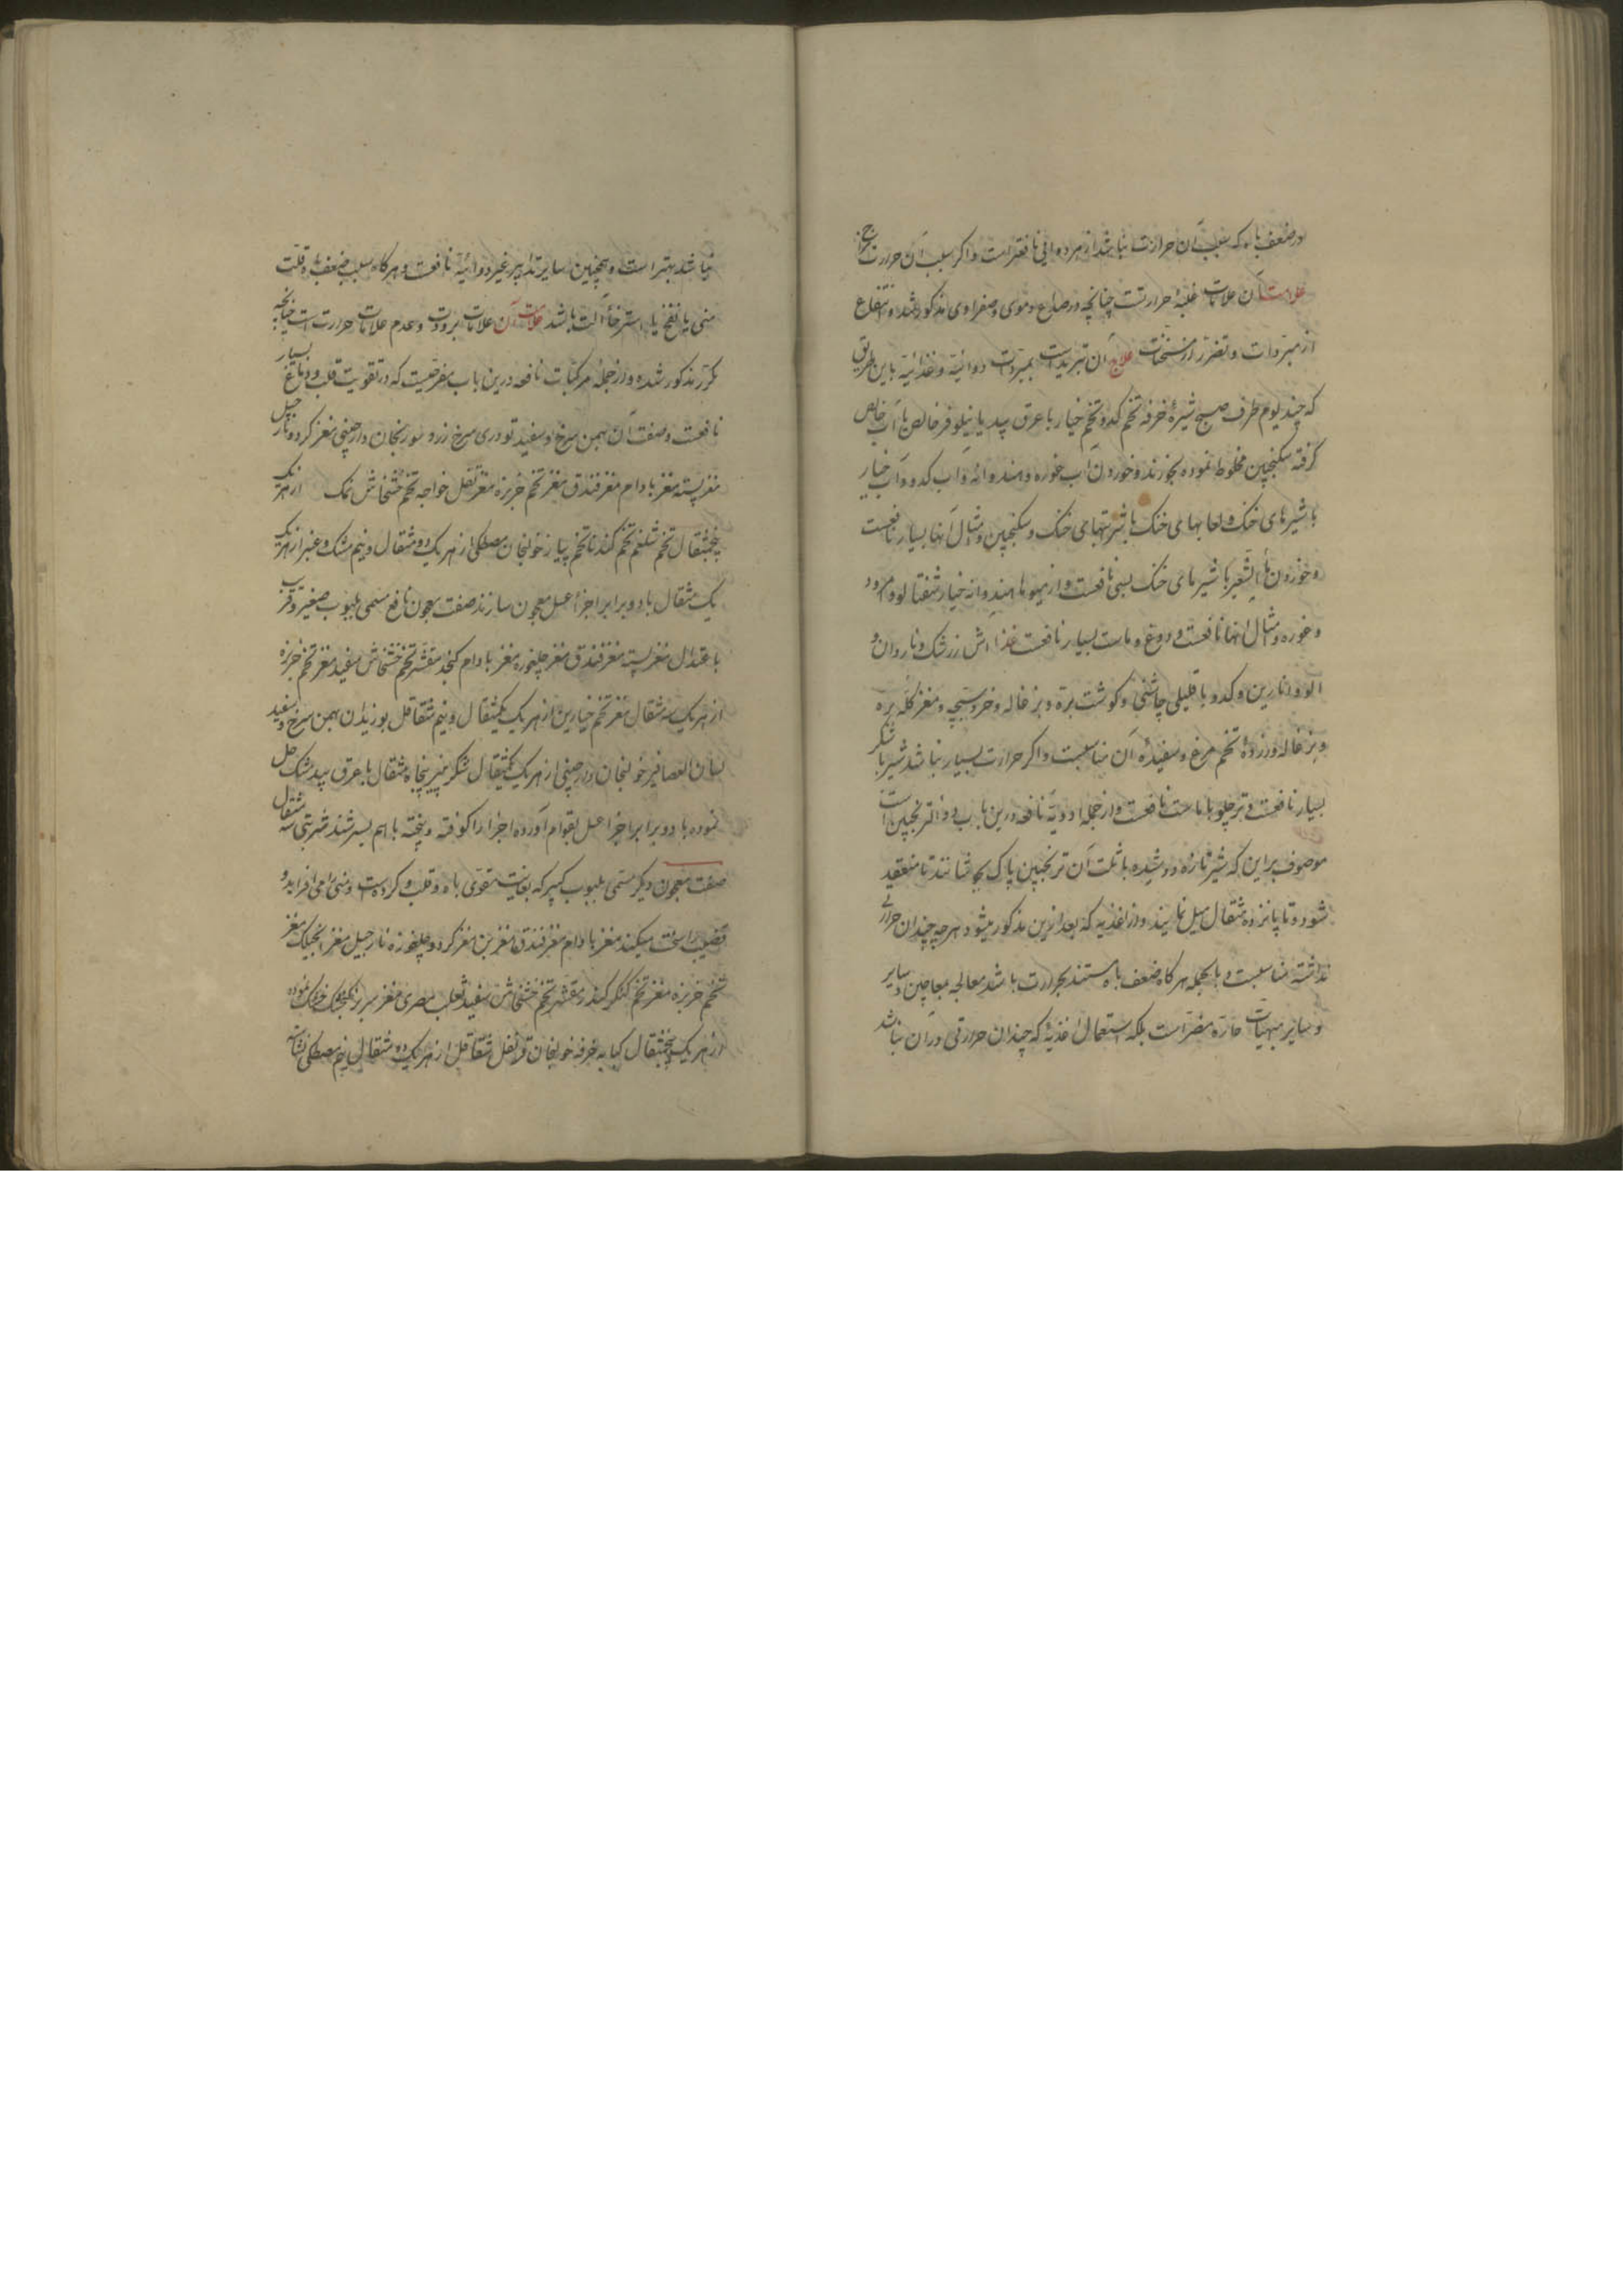 در ضعف باه که سبب آن حرارت نباشد از هر دوائی نافعتر است و اگر سبب آن حرارت
علامت آن علامات غلبهٔ حرارتست چنانچه در صداع دموی و صفراوی مذکور شد و انتفاع
از مبردات و تضرر از مسخنات علاج آن تبریداست بمبردات دوائیه و غذائیه باین طریق
که چند یوم ظرف صبح شیرهٔ خرفه تخم کدو تخم خیار با عرق بید یا نیلوفر خالص یا آب خالص
گرفته سکنجبین مخلوط نموده بخورند و خوردن آب غوره و هندوانه و آب کدو و آب خیار
با شیرهای خنک و لعابهای خنک با شربتهای خنک و سکنجبین و امثال آنها بسیار نافعست
و خوردن ماءالشعیر با شیرهای خنک بسی نافعست و از میوها هندوانه خیار شفتالو و امرود
و غوره و امثال انها نافعست و دوغ و ماست بسیار نافعست غذا آش زرشک و ناردان و
الو و انارین و کدو با قلیلی چاشنی و گوشت بره و بزغاله و خروسبچه و مغز کله بره
و بزغاله و زردهٔ تخم مرغ و سفیدهٔ آن مناسبست و اگر حرارت بسیار نباشد شیر با شکر
بسیار نافعست و ترحلو با ماست نافعست و از جمله ادویهٔ نافعه درین باب دواء ترنجبین است
موصوف براین که شیر تازه دوشیده با ثلث آن ترنجبین پاک بجوشانند تا منعقد
شود و تا پانزده مثقال میل نمایند و از اغذیه که بعد ازین مذکور میشود هرچه چندان حرارتی
نداشته مناسبست و بالجمله هرگاه ضعف باه مستند بحرارت باشد معالجه بمعاجین و سایر
و سایر مبهیات حاره مضر است بلکه استعمال اغذیهٔ که چندان حرارتی در آن نباشد
نباشد بهتر است و همچنین سایر تدابیر غیر دوائیه نافعست و هرگاه سبب ضعف باه قلت
منی یا نفخ یا استرخاء آلت باشد علامت آن علامات برودت و عدم علامات حرارت است چنانچه
مکرر مذکور شده و از جمله مرکبات نافعه درین باب مفرحیست که در تقویت قلب و دماغ بسیار
نافعست و صفت آن بهمن سرخ و سفید تودری سرخ زرد سورنجان دارچینی مغز گردو نارجیل
مغز پسته مغز بادام مغز فندق مغز تخم خربزه مغز تقل خواجه تخم خشخاش نمک از هریک
پنجمثقال تخم شلغم تخم گندنا تخم پیاز خولنجان مصطکی از هریک دو مثقال و نیم مشک و عنبر از هریک
یک مثقال با دو برابر اجزا عسل معجون سازند صفت معجون نافع مسمی بلبوب صغیر و قریب
باعتدال مغز پسته مغز فندق مغز چلغوزه مغز بادام کنجد مقشر تخم خشخاش سفید مغز تخم خربزه
از هریک سه مثقال مغز تخم خیارین از هریک یکمثقال و نیم شقاقل بوزیدان بهمن سرخ و سفید
لسان العصافیر خولنجان دارچینی از هریک یکمثقال شکر پنیر پنجاه مثقال با عرق بیدمشک حل
نموده با دو برابر اجزا عسل بقوام آورده اجزا را کوفته و بیخته با هم بسرشند شربتی سه مثقال
صفت معجون دیگر مسمی بلبوب کبیر که بغایت مقوی باه و قلب و کرده است و منی را می افزاید و
قضیب را سخت میکند مغز بادام مغز فندق مغز بن مغز گردو چلغوزه نارجیل مغز انجیلک مغز
تخم خربزه مغز تخم کنکر کنجد مقشر تخم خشخاش سفید ثعلب مصری مغز سر بز گنجشک خشک نموده
از هریک پنجمثقال کبابه خرفه خولنجان قرنفل شقاقل از هریک ده مثقال و نیم مصطکی نشاسته